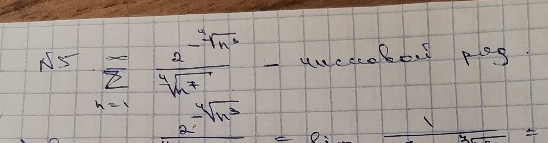 N5 ∑_{n=1}^{∞} 2^{-⁴√n³} / ⁴√n⁷ - числовой ряд.
2^{-⁴√n³} = 1 =